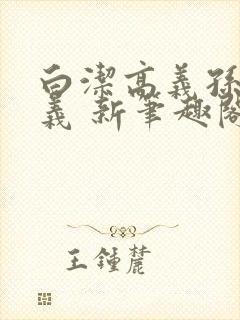 白潔高義孫
義 新筆趣閣
王鍾麓